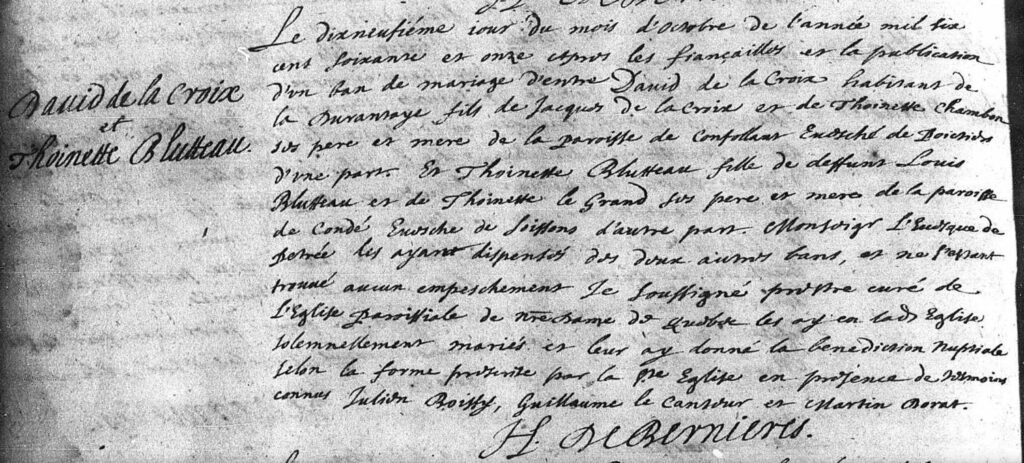 David de la Croix
et
Thoinette Blutteau.
Le dixneufiéme iour du mois d'octobre de l'année mil six
cent soixante et onze apres les fiançailles et la publication
d'vn ban de mariage d'entre David de la Croix habitant de
la Durantaye fils de Jacques de la Croix et de Thoinette Chambon
ses pere et mere de la paroisse de Confollant Euesché de Poictiers
d'vne part. Et Thoinette Blutteau fille de deffunt Louis
Blutteau et de Thoinette le Grand ses pere et mere de la paroisse
de Condé Euesché de Soissons d'autre part. Monseigr L'Euesque de
Petrée les ayant dispensés des deux autres bans, et ne s'estant
trouué aucun empeschement Je soussigné prestre curé de
L'Eglise Paroissiale de nre Dame de Quebec les ay en lad Eglise
solennellement mariés et leur ay donné la benediction Nuptiale
selon la forme prescrite par la Ste Eglise en présence de temoins
connus Julien Boissy, Guillaume le Cantour et Martin
H. DeBernieres.